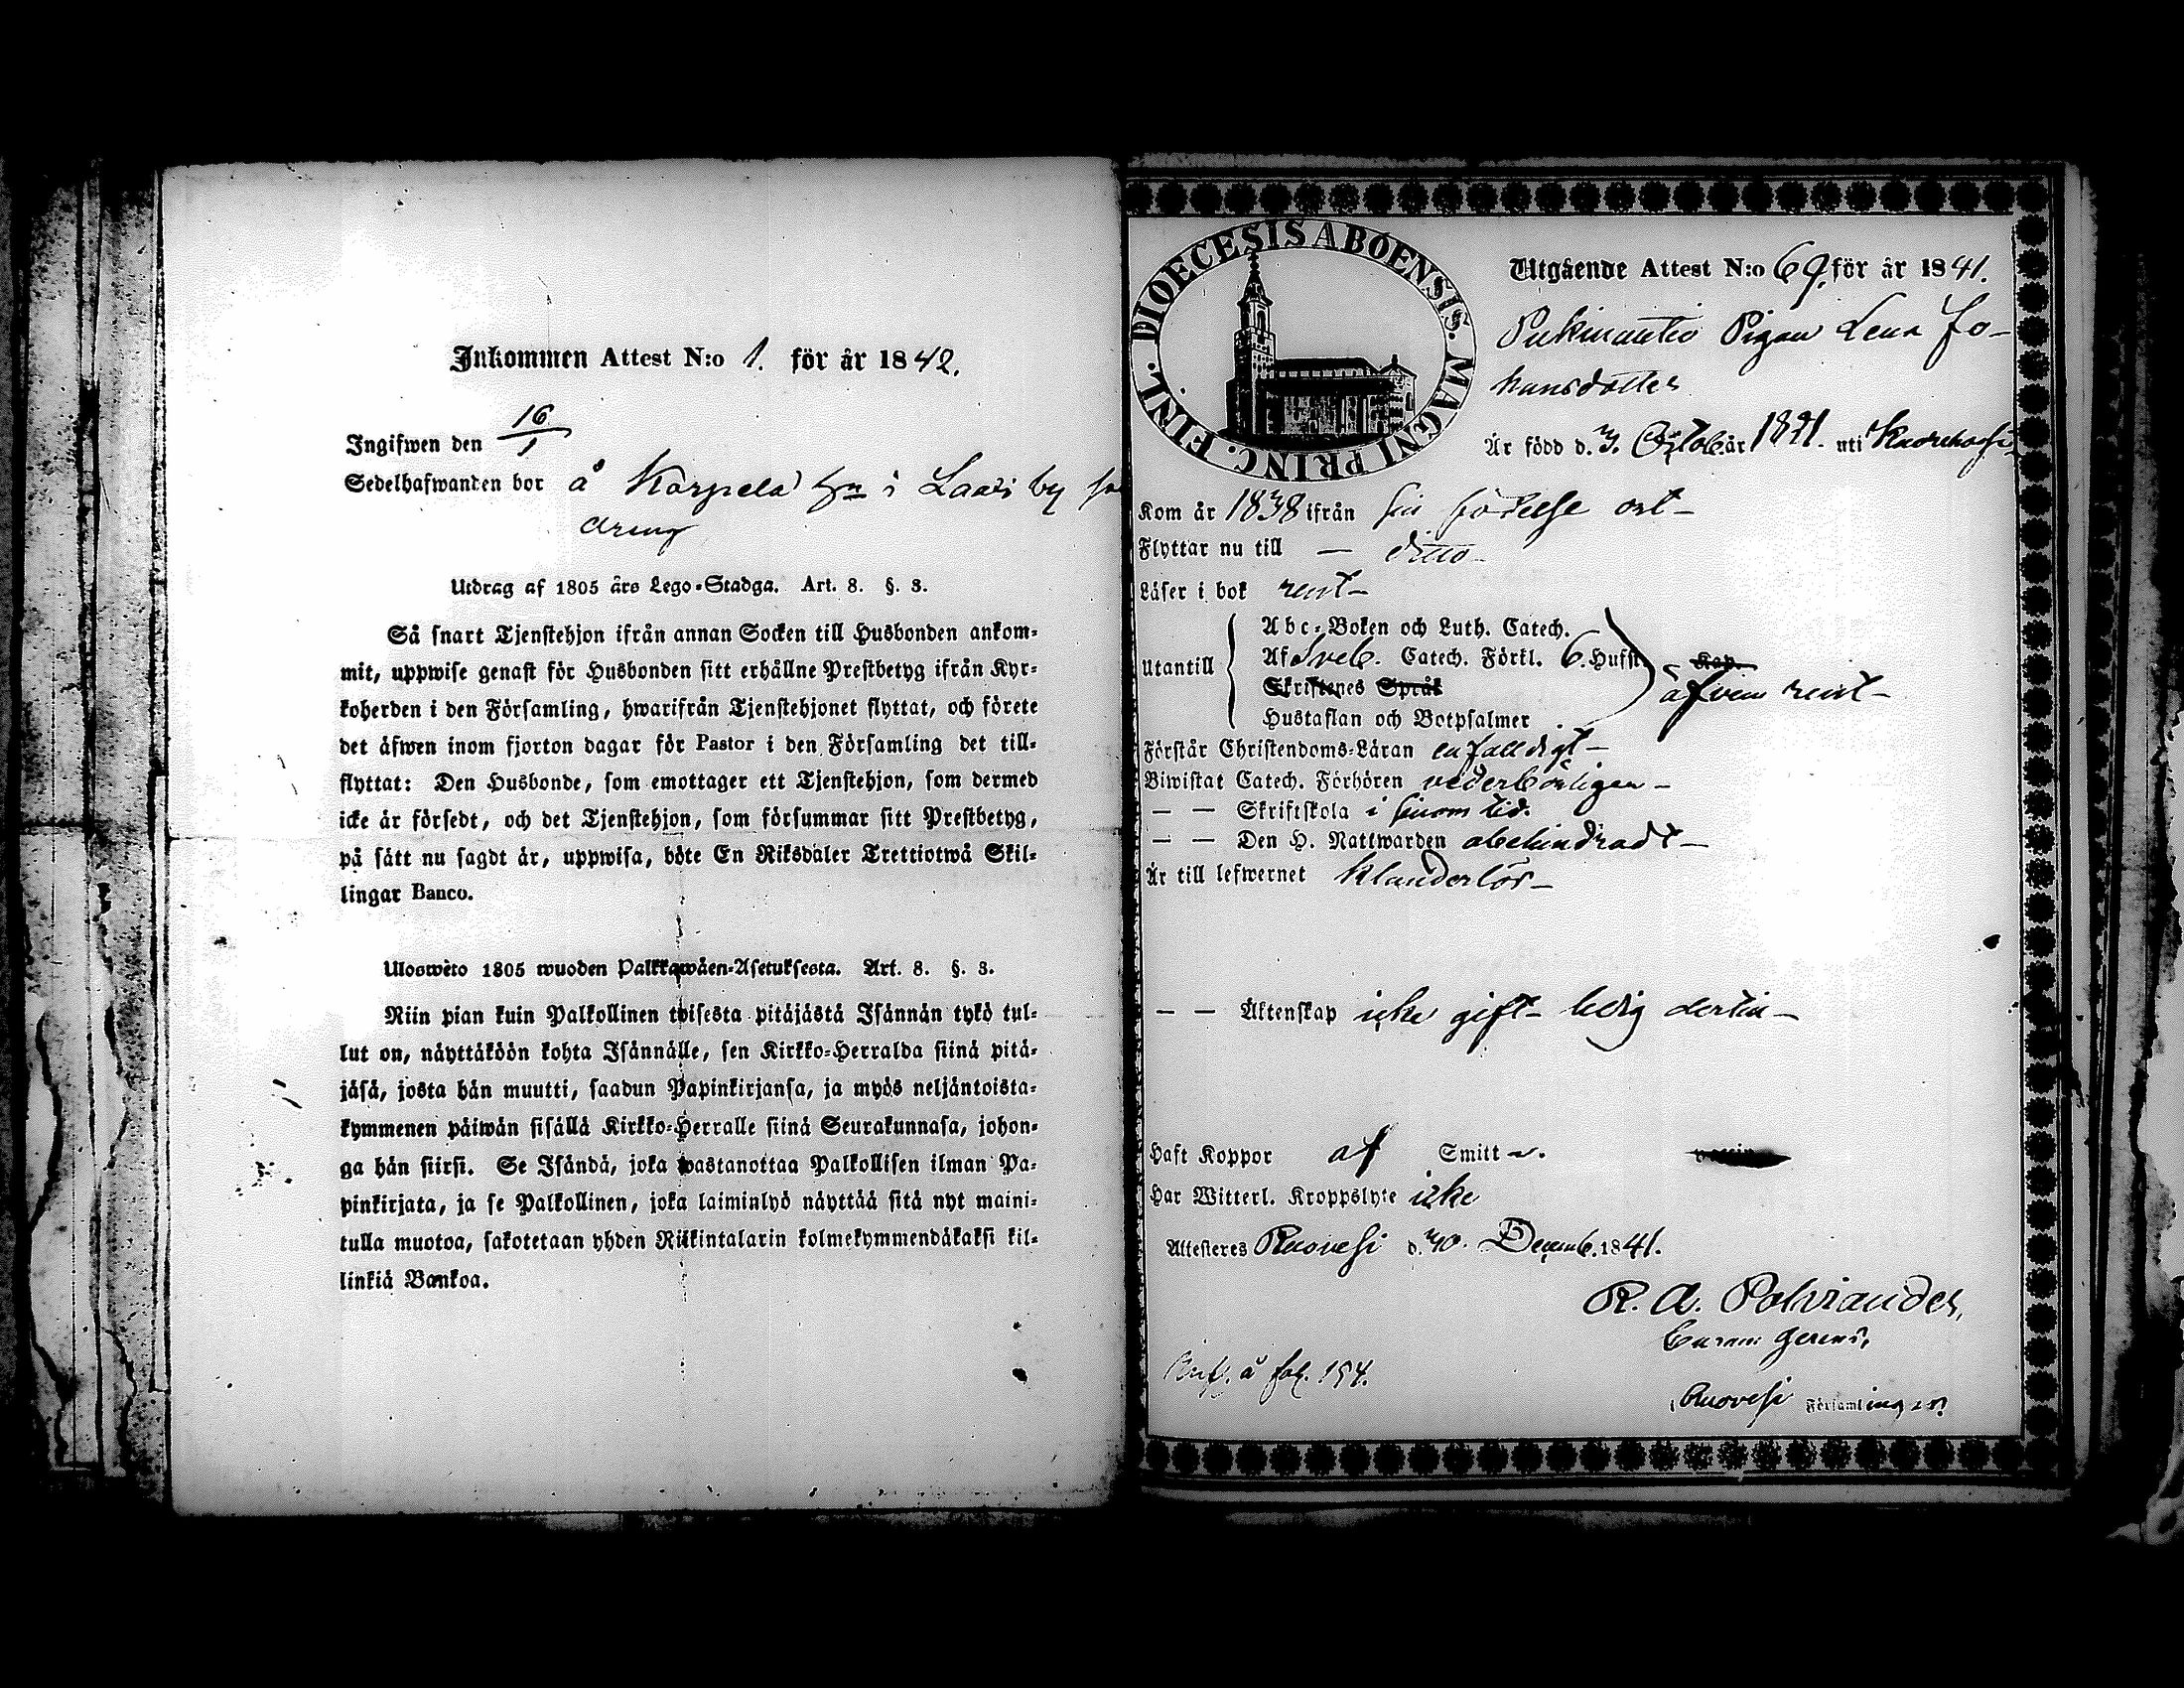 Inkommen Attest N:o 1. för år 1842.
Ingifwen den 16/1
Sedelhafwanden bor å Karpela hn i Laasi by
Utdrag af 1805 års Lego-Stadga. Art. 8. §. 3.
Så snart Tjenstehjon ifrån annan Socken till Husbonden ankom-
mit, uppwise genast för Husbonden sitt erhållne Prestbetyg ifrån Kyr-
koherden i den Församling, hwarifrån Tjenstehjonet flyttat, och förete
det äfwen inom fjorton dagar för Pastor i den Församling det till-
flyttat: Den Husbonde, som emottager ett Tjenstehjon, som dermed
icke är försedt, och det Tjenstehjon, som försummar sitt Prestbetyg,
på sätt nu sagdt är, uppwisa, böte En Riksdaler Trettiotwå Skil-
lingar Banco.
Uloswèto 1805 wuoden Palkkawäen-Asetuksesta. Art. 8. §. 3.
Niin pian kuin Palkollinen toisesta pitäjästä Isännän tykö tul-
lut on, näyttäköön kohta Isännälle, sen Kirkko-Herralda siinä pitä-
jäsä, josta hän muutti, saadun Papinkirjansa, ja myös neljäntoista-
kymmenen päiwän sisällä Kirkko-Herralle siinä Seurakunnasa, johon-
ga hän siirsi. Se Isändä, joka wastanottaa Palkollisen ilman Pa-
pinkirjata, ja se Palkollinen, joka laiminlyö näyttää sitä nyt maini-
tulla muotoa, sakotetaan yhden Riikintalarin kolmekymmendäkaksi kil-
linkiä Bankoa.
DIOECESIS ABOENSIS. MAGNI PRINC. FINL.
Utgående Attest N:o 69. för år 1841.
Pigan Lena Jo-
hansdotter
Är född d. 3. Octob. år 1821. uti
Kom år 1838 ifrån sin födelse ort-
Flyttar nu till — ditto-
Läser i bok rent-
Abc-Boken och Luth. Catech.
Utantill Af Sveb. Catech. Förkl. 6. Hufst. Kap.
Skriftenes Språk äfven rent-
Hustaflan och Botpsalmer
Förstår Christendoms-Läran enfalldigt-
Biwistat Catech. Förhören vederbörligen-
— — Skriftskola i sinom tid.
— — Den H. Nattwarden obehindradt-
Är till lefwernet klanderlös-
— — Äktenskap icke gift- ledig dertill-
Haft Koppor af Smitt
Har Witterl. Kroppslyte icke
Attesteres Ruovesi d. 30. Decemb. 1841.
R. A. Polviander,
Curam gerens,
Ruovesi Församling
Inf. å fol. 194.